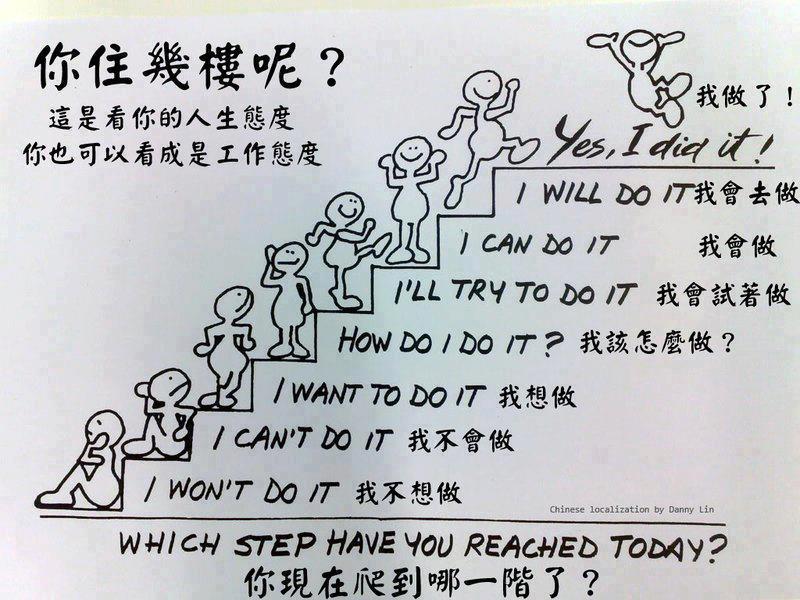 你住幾樓呢？
這是看你的人生態度
你也可以看成是工作態度
我做了！
Yes, I did it!
I WILL DO IT 我會去做
I CAN DO IT 我會做
I'LL TRY TO DO IT 我會試著做
HOW DO I DO IT? 我該怎麼做？
I WANT TO DO IT 我想做
I CAN'T DO IT 我不會做
I WON'T DO IT 我不想做
Chinese localization by Danny Lin
WHICH STEP HAVE YOU REACHED TODAY?
你現在爬到哪一階了？